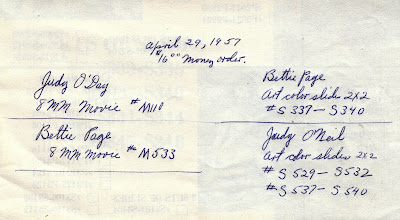 April 29, 1957
$16.00 Money order.
Judy O'Day
8 MM Movie # M110
Bettie Page
8 MM Movie # M533
Bettie Page
Art color slides 2x2
# S 337 - S 340
Judy O'Neil
Art color slides 2x2
# S 529 - S 532
# S 537 - S 540